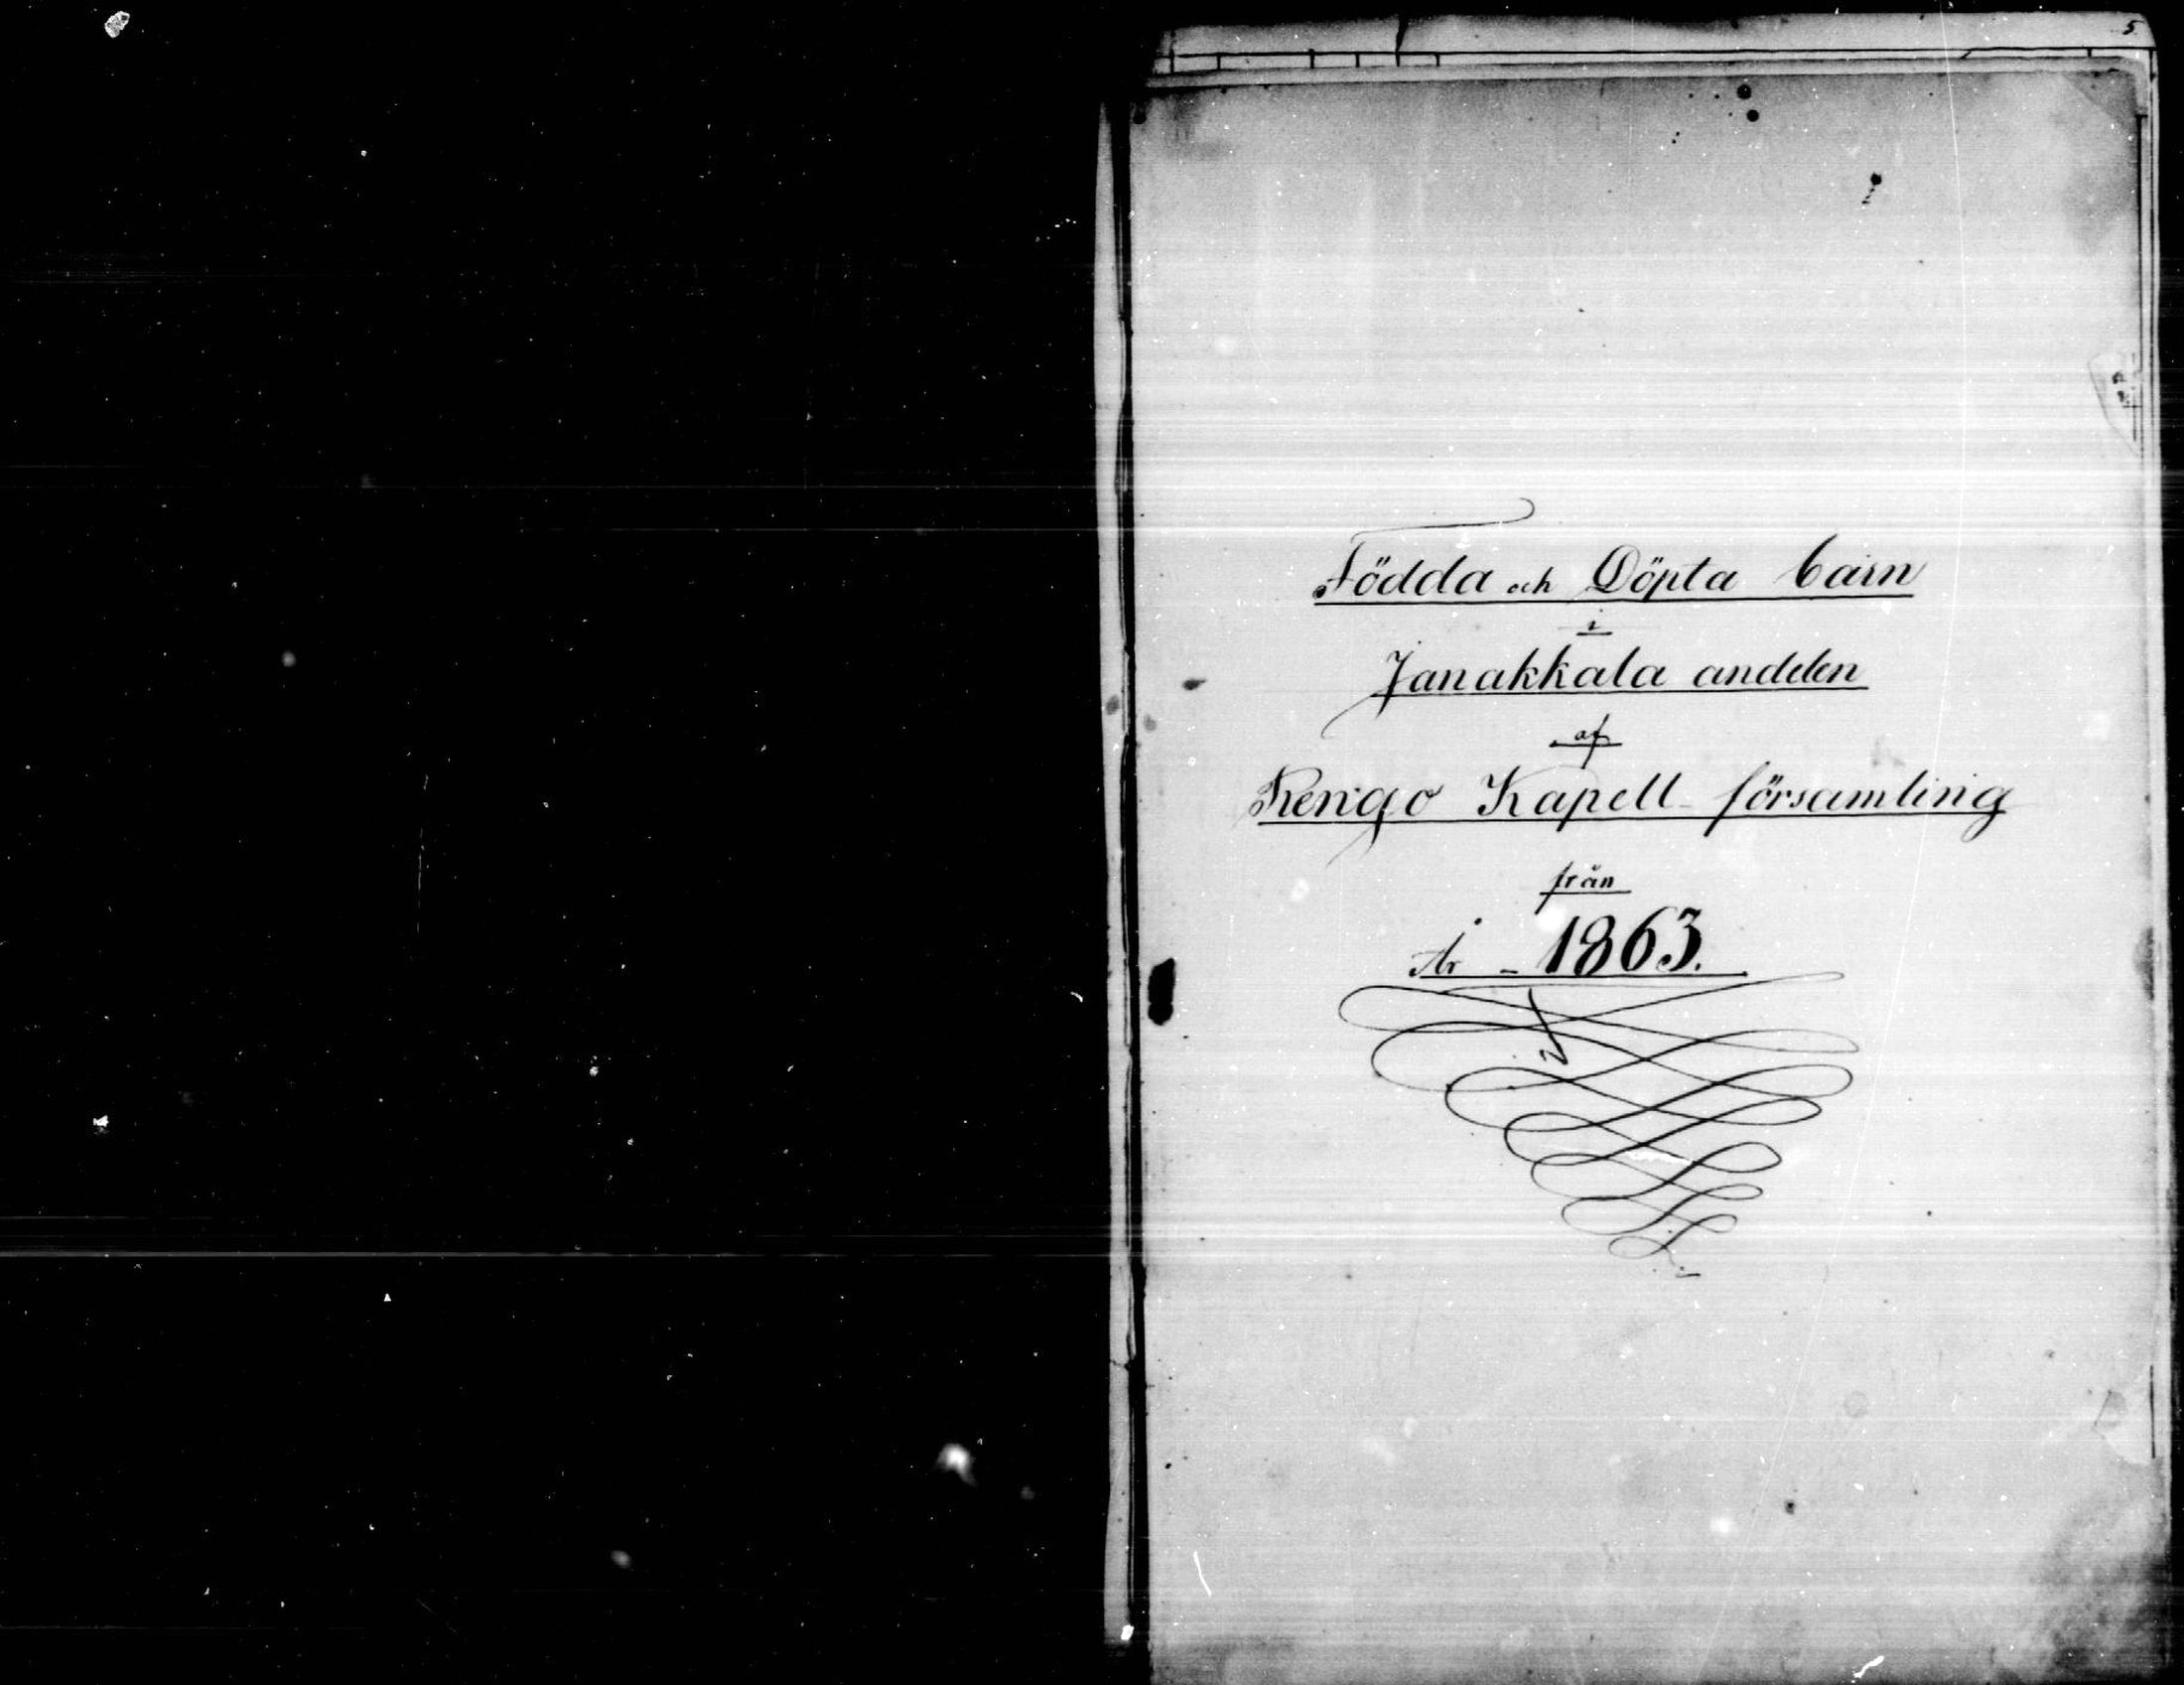 5
Födda och Döpta barn
i
Janakkala andelen
af
Rengo Kapell-församling
från
År - 1863.